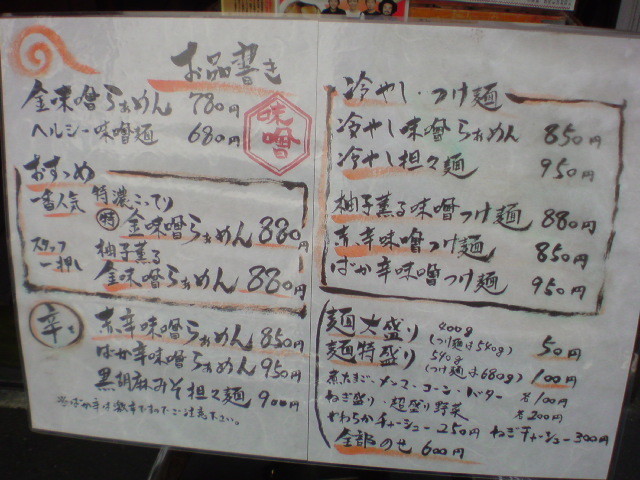 お品書き
金味噌らぁめん 780円
ヘルシー味噌麺 680円
味噌
おすすめ
一番人気 特濃こってり
特 金味噌らぁめん 880円
スタッフ一押し 柚子薫る
金味噌らぁめん 880円
辛
赤辛味噌らぁめん 850円
ばか辛味噌らぁめん 950円
黒胡麻みそ担々麺 900円
※ばか辛は激辛ですのでご注意下さい。
冷やし・つけ麺
冷やし味噌らぁめん 850円
冷やし担々麺 950円
柚子薫る味噌つけ麺 880円
赤辛味噌つけ麺 850円
ばか辛味噌つけ麺 950円
麺大盛り 400g (つけ麺は540g) 50円
麺特盛り 540g (つけ麺は680g) 100円
煮たまご・メンマ・コーン・バター 各100円
ねぎ盛り・超盛り野菜 各200円
やわらかチャーシュー 250円 ねぎチャーシュー 300円
全部のせ 600円